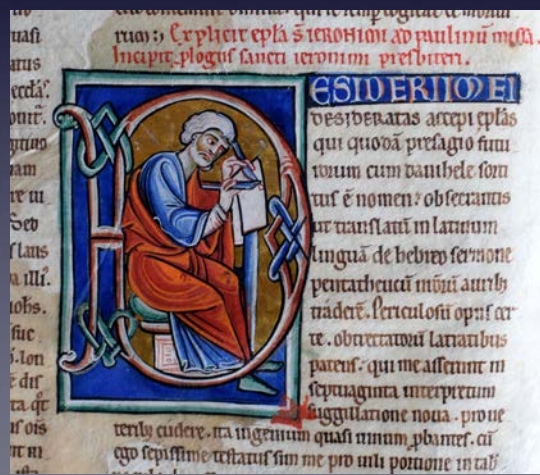 rum :) Explicit epl̄a s̄ ieronimi ad paulinū missa.
Incipit plogus sancti ieronimi presbiteri.
DESIDERII MEI
DESIDERATAS accepi epl̄as
qui quodā presagio futu
rorum cum danihele sorti
tus ē nomen: obsecrantis
ut translatū in latinum
linguā de hebreo sermone
pentatheucū nr̄orū aurib;
tradere. Periculosū opus cer
te. obtrectatorū latratibus
patens. qui me asserunt in
septuaginta interpretum
suggillatione noua. pro ue
terib; cudere. ita ingenium quasi uinum pbantes. cū
ego sepissime testatus sim me pro uili portione in tab
uasi
atus
ecclā.
onit.
gitino
nam
re ui
Sed
s laus
a illi.
iohs.
fuc
. lon
e dis
ta qt
us ois
nt in